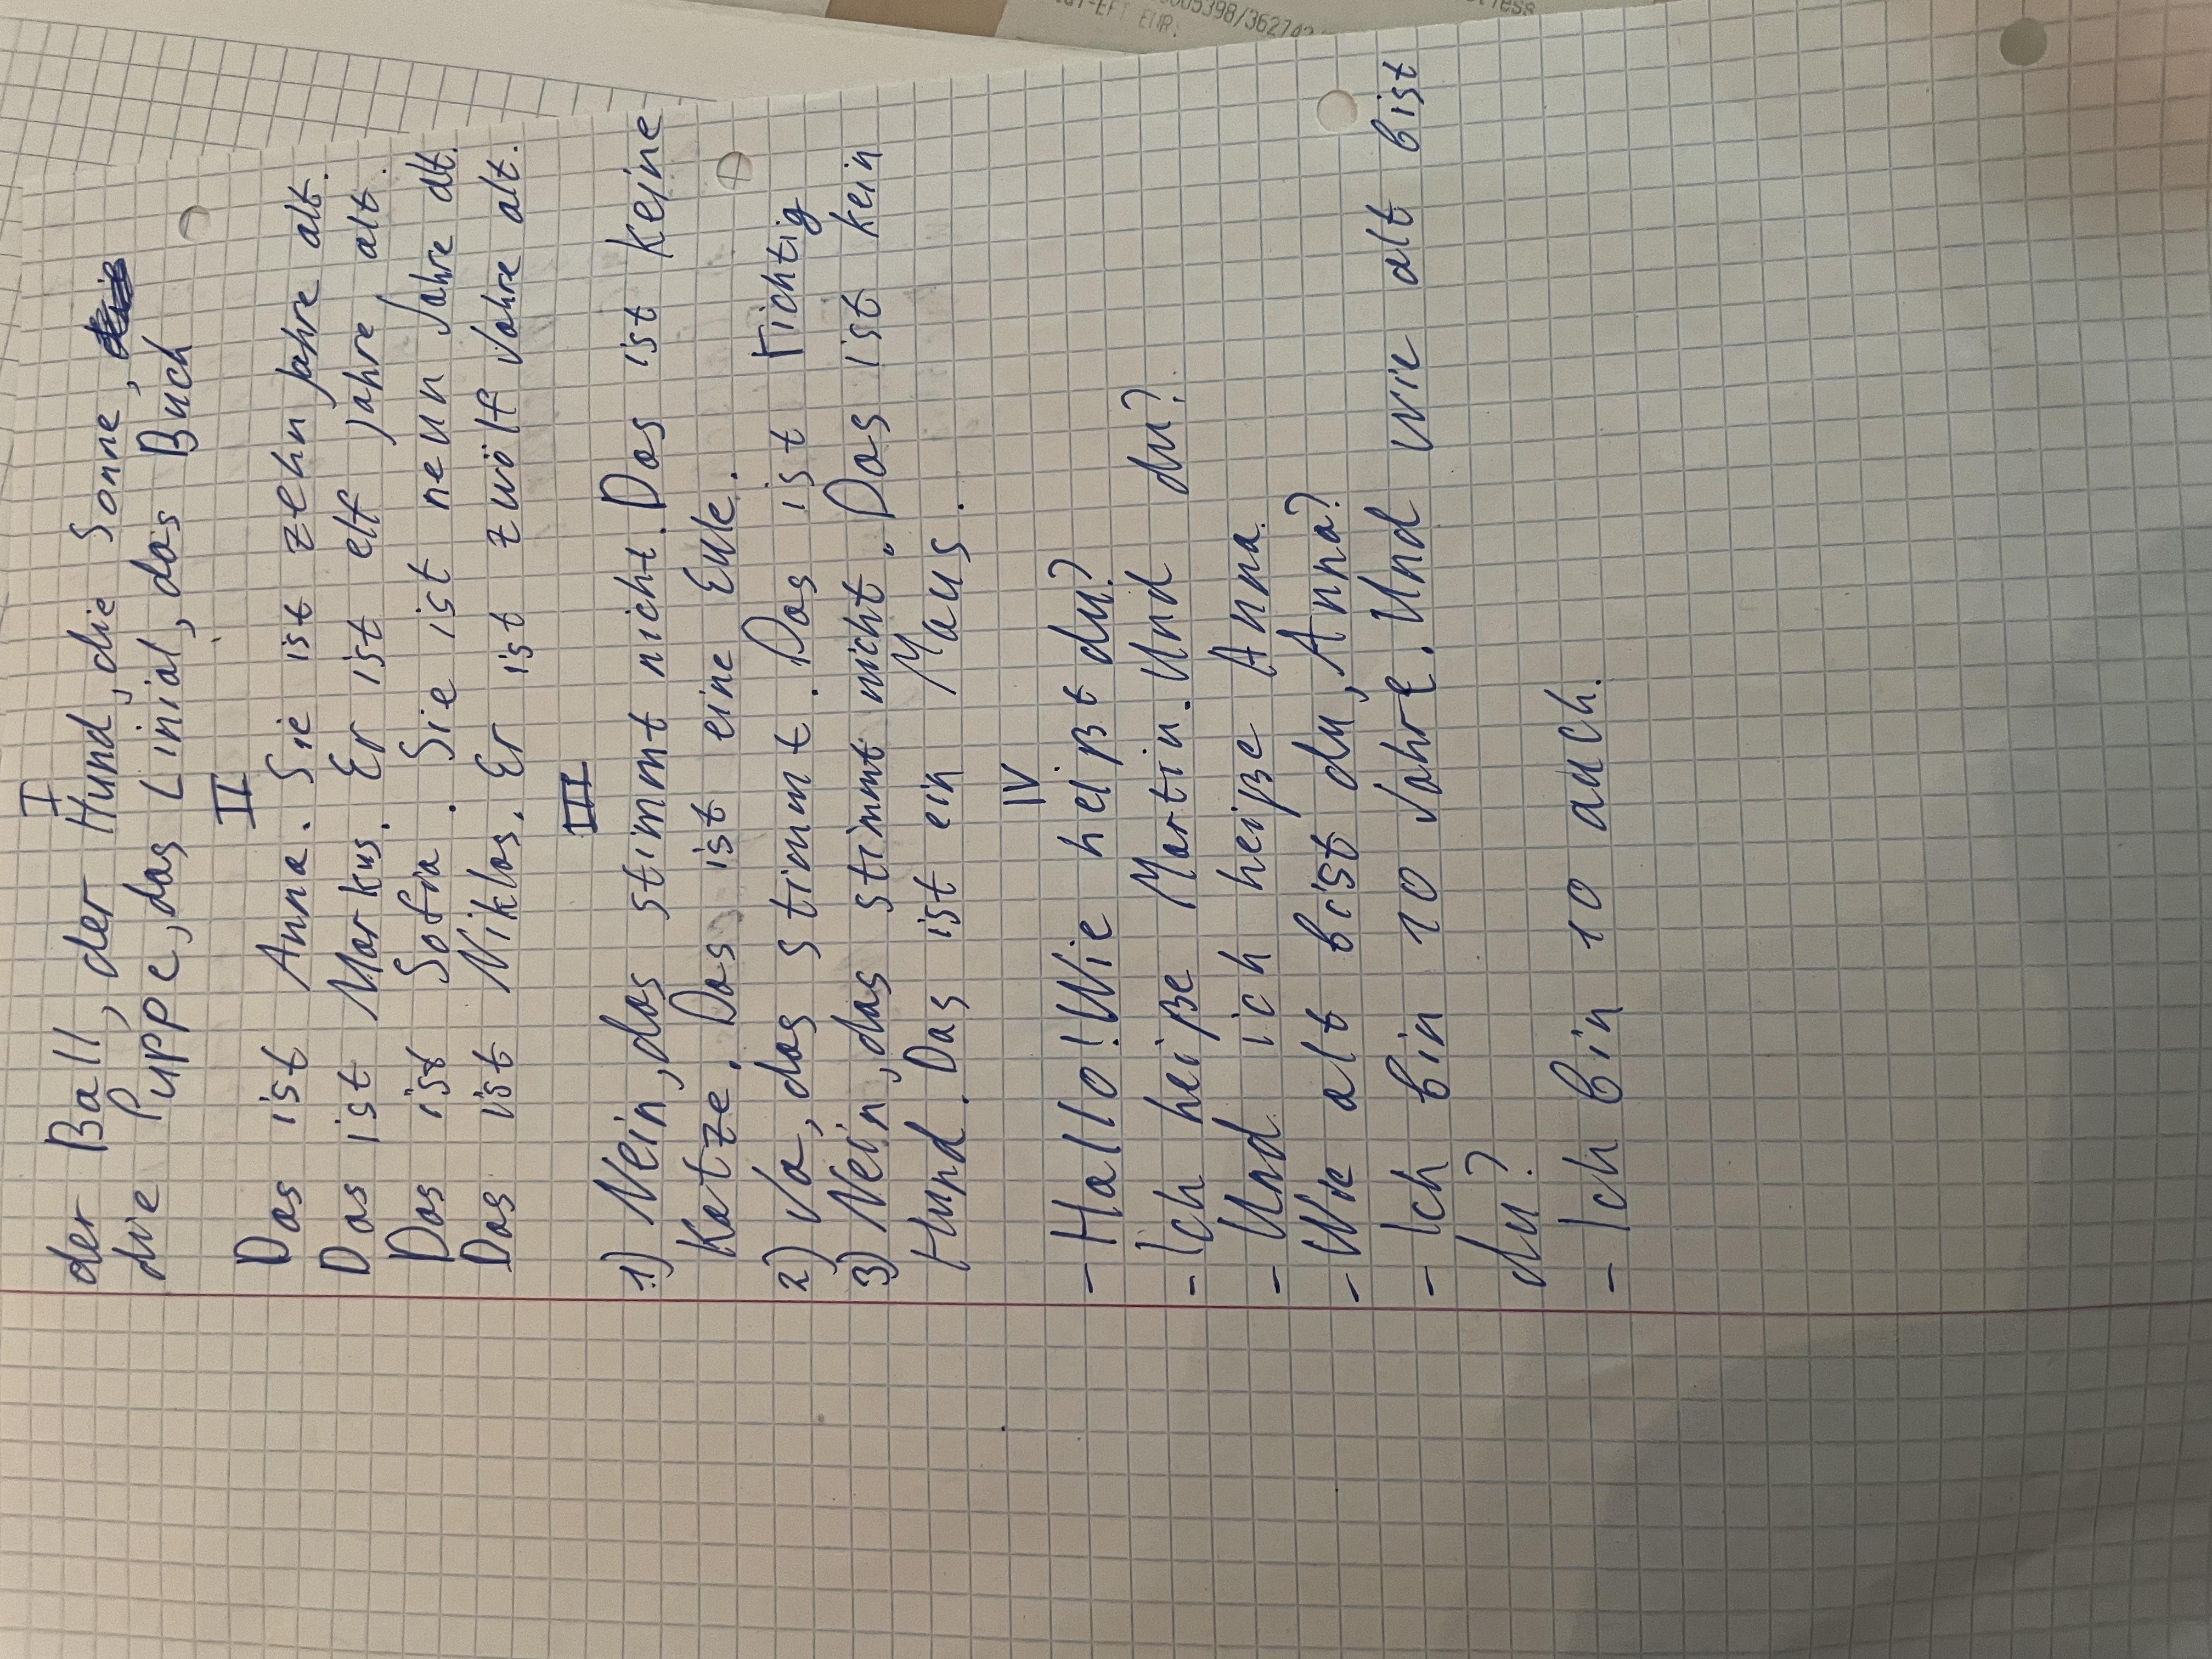 I
der Ball, der Hund, die Sonne,
die Puppe, das Linial, das Buch
II
Das ist Anna. Sie ist zehn Jahre alt.
Das ist Markus. Er ist elf Jahre alt.
Das ist Sofia. Sie ist neun Jahre alt.
Das ist Niklas. Er ist zwölf Jahre alt.
III
1) Nein, das stimmt nicht. Das ist keine
Katze. Das ist eine Eule.
2) Ja, das stimmt. Das ist richtig
3) Nein, das stimmt nicht. Das ist kein
Hund. Das ist ein Maus.
IV
- Hallo! Wie heißt du?
- Ich heiße Martin. Und du?
- Und ich heiße Anna.
- Wie alt bist du, Anna?
- Ich bin 10 Jahre. Und wie alt bist
du?
- Ich bin 10 auch.